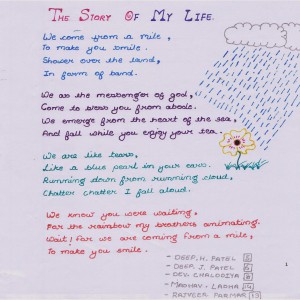 The Story Of My Life.
We come from a mile,
To make you smile.
Shower over the land,
In form of band.
We as the messenger of god,
Come to bless you from above.
We emerge from the heart of the sea,
And fall while you enjoy your tea.
We are like tears,
Like a blue pearl in your ears.
Running down from running cloud,
Chatter chatter I fall aloud.
We know you were waiting,
For the rainbow my brothers animating.
Wait! for we are coming from a mile,
To make you smile.
- DEEP. H. PATEL 5
- DEEP. J. PATEL 6
- DEV. CHALODIYA 8
- MADHAV. LADHA 14
- RAJVEER PARMAR 13